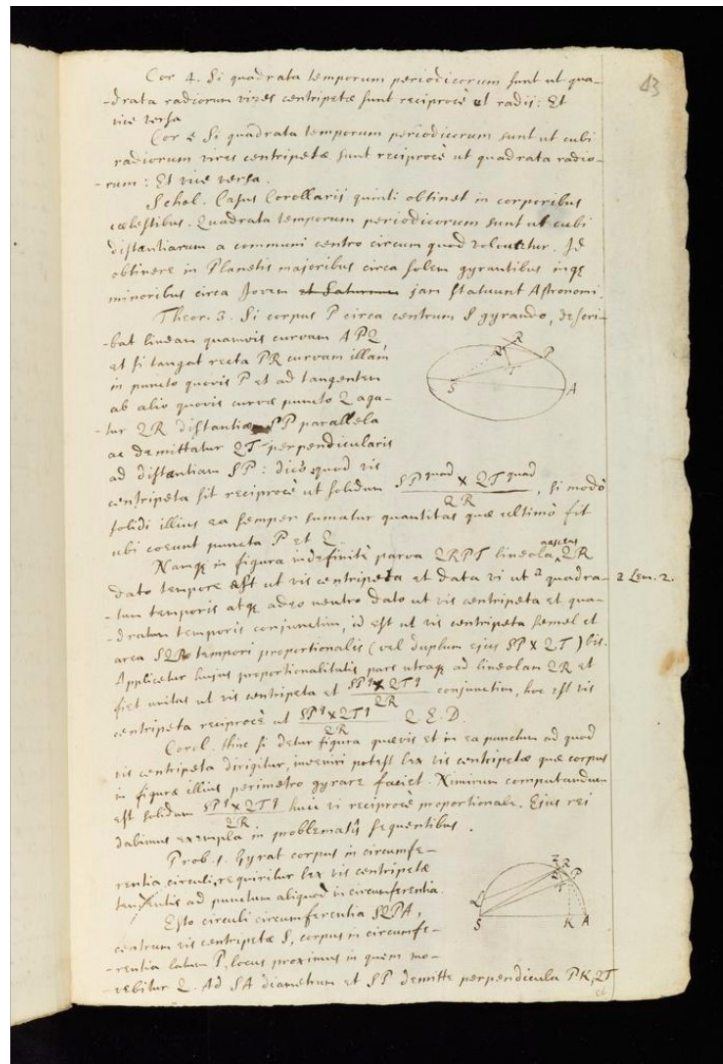 43
Cor 4. Si quadrata temporum periodicorum sunt ut qua-
-drata radiorum vires centripetæ sunt reciprocè ut radii: Et
vice versa
Cor 5 Si quadrata temporum periodicorum sunt ut cubi
radiorum vires centripetæ sunt reciprocè ut quadrata radio-
-rum: Et vice versa.
Schol. Casus Corollarii quinti obtinet in corporibus
cælestibus. Quadrata temporum periodicorum sunt ut cubi
distantiarum a communi centro circum quod volvuntur. Id
obtinere in Planetis majoribus circa Solem gyrantibus inqꝫ
minoribus circa Jovem et Saturnum jam statuunt Astronomi.
Theor. 3. Si corpus P circa centrum S gyrando, descri-
-bat lineam quamvis curvam APQ,
et si tangat recta PR curvam illam
in puncto quovis P et ad tangentem
ab alio quovis curvæ puncto Q aga-
-tur QR distantiæ SP parallela
ac demittatur QT perpendicularis
ad distantiam SP: dico quod vis
centripeta sit reciprocè ut solidum SP quad × QT quad / QR, si modò
solidi illius ea semper sumatur quantitas quæ ultimò fit
ubi coeunt puncta P et Q.
Namqꝫ in figura indefinitè parva QRPT lineola nascens QR
dato tempore est ut vis centripeta et data vi ut ² quadra- 2 Lem. 2.
-tum temporis atqꝫ adeo neutro dato ut vis centripeta et qua-
-dratum temporis conjunctim, id est ut vis centripeta semel et
area SQP tempori proportionalis (vel duplum ejus SP × QT) bis.
Applicetur hujus proportionalitatis pars utraqꝫ ad lineolam QR et
fiet unitas ut vis centripeta et SPq × QTq / QR conjunctim, hoc est vis
centripeta reciprocè ut SPq × QTq / QR Q.E.D.
Corol. Hinc si detur figura quævis et in ea punctum ad quod
vis centripeta dirigitur, inveniri potest lex vis centripetæ quæ corpus
in figuræ illius perimetro gyrare faciet. Nimirum computandum
est solidum SPq × QTq / QR huic vi reciprocè proportionale. Ejus rei
dabimus exempla in problematis sequentibus.
Prob. 1. Gyrat corpus in circumfe-
rentia circuli, requiritur lex vis centripetæ
tendentis ad punctum aliquod in circumferentia.
Esto circuli circumferentia SQPA,
centrum vis centripetæ S, corpus in circumfe-
-rentia latum P, locus proximus in quem mo-
-vebitur Q. Ad SA diametrum et SP demitte perpendicula PK, QT
R
Q
P
T
S
A
Z
R
P
Q
T
L
S
K
A